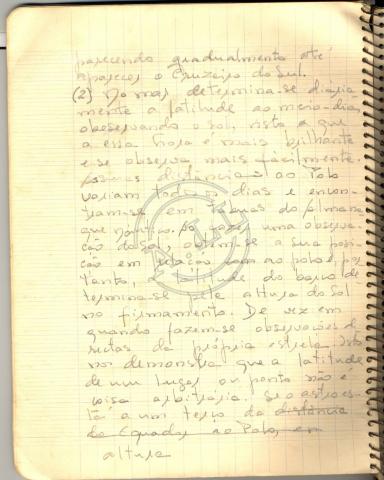 parecendo gradualmente até
aparecer o Cruzeiro do Sul.
(2) No mar determina-se diària
mente a latitude ao meio-dia,
obeservando o sol, visto que
a essa hora é mais brilhante
e se observa mais fàcilmente.
distâncias ao Polo
variam todos os dias e encon-
tram-se em Tábuas do Almana
que náutico. Ao fazer uma observa-
ção do sol, obtem-se a sua posi-
ção em relação com o polo e, por
tanto, a latitude do barco de-
termina-se pela altura do Sol
no firmamento. De vez em
quando fazem-se observações di
rectas da própria estrela. Isto
nos demonstra que a latitude
de um lugar ou ponto não é
coisa arbitrária. Se o astro es-
tá a um terço da distância
do Equador ao Polo, em
altura